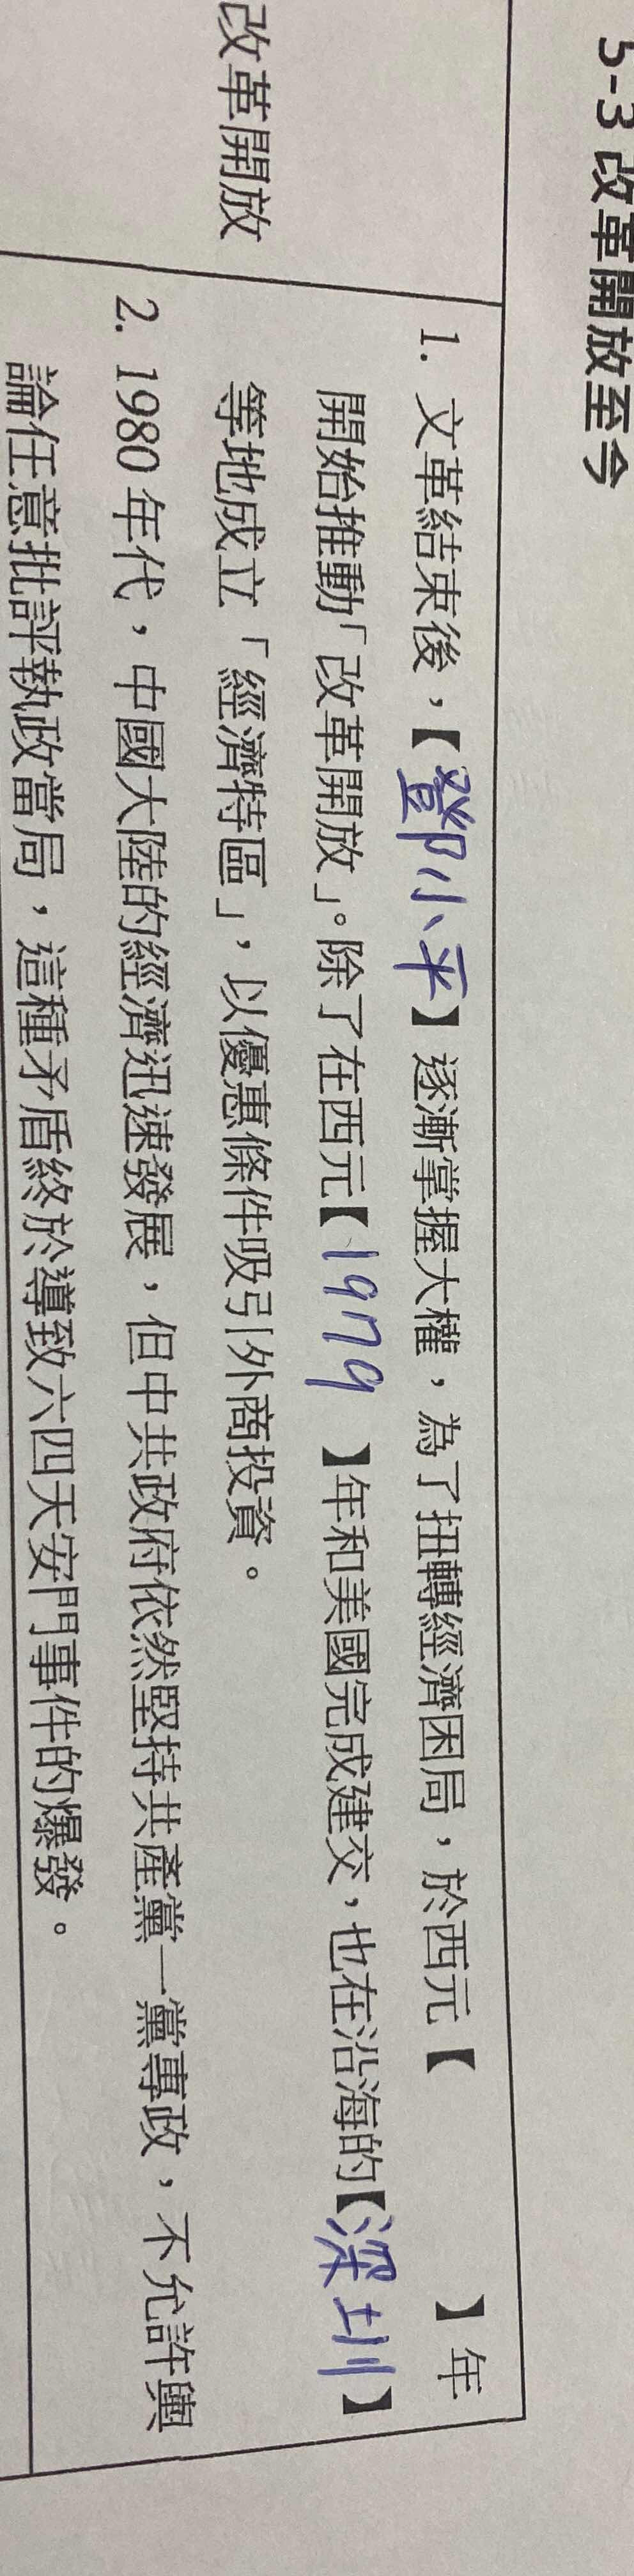 5-3 改革開放至今
改革開放
1. 文革結束後，【鄧小平】逐漸掌握大權，為了扭轉經濟困局，於西元【　　】年
開始推動「改革開放」。除了在西元【1979】年和美國完成建交，也在沿海的【深圳】
等地成立「經濟特區」，以優惠條件吸引外商投資。
2. 1980 年代，中國大陸的經濟迅速發展，但中共政府依然堅持共產黨一黨專政，不允許輿
論任意批評執政當局，這種矛盾終於導致六四天安門事件的爆發。